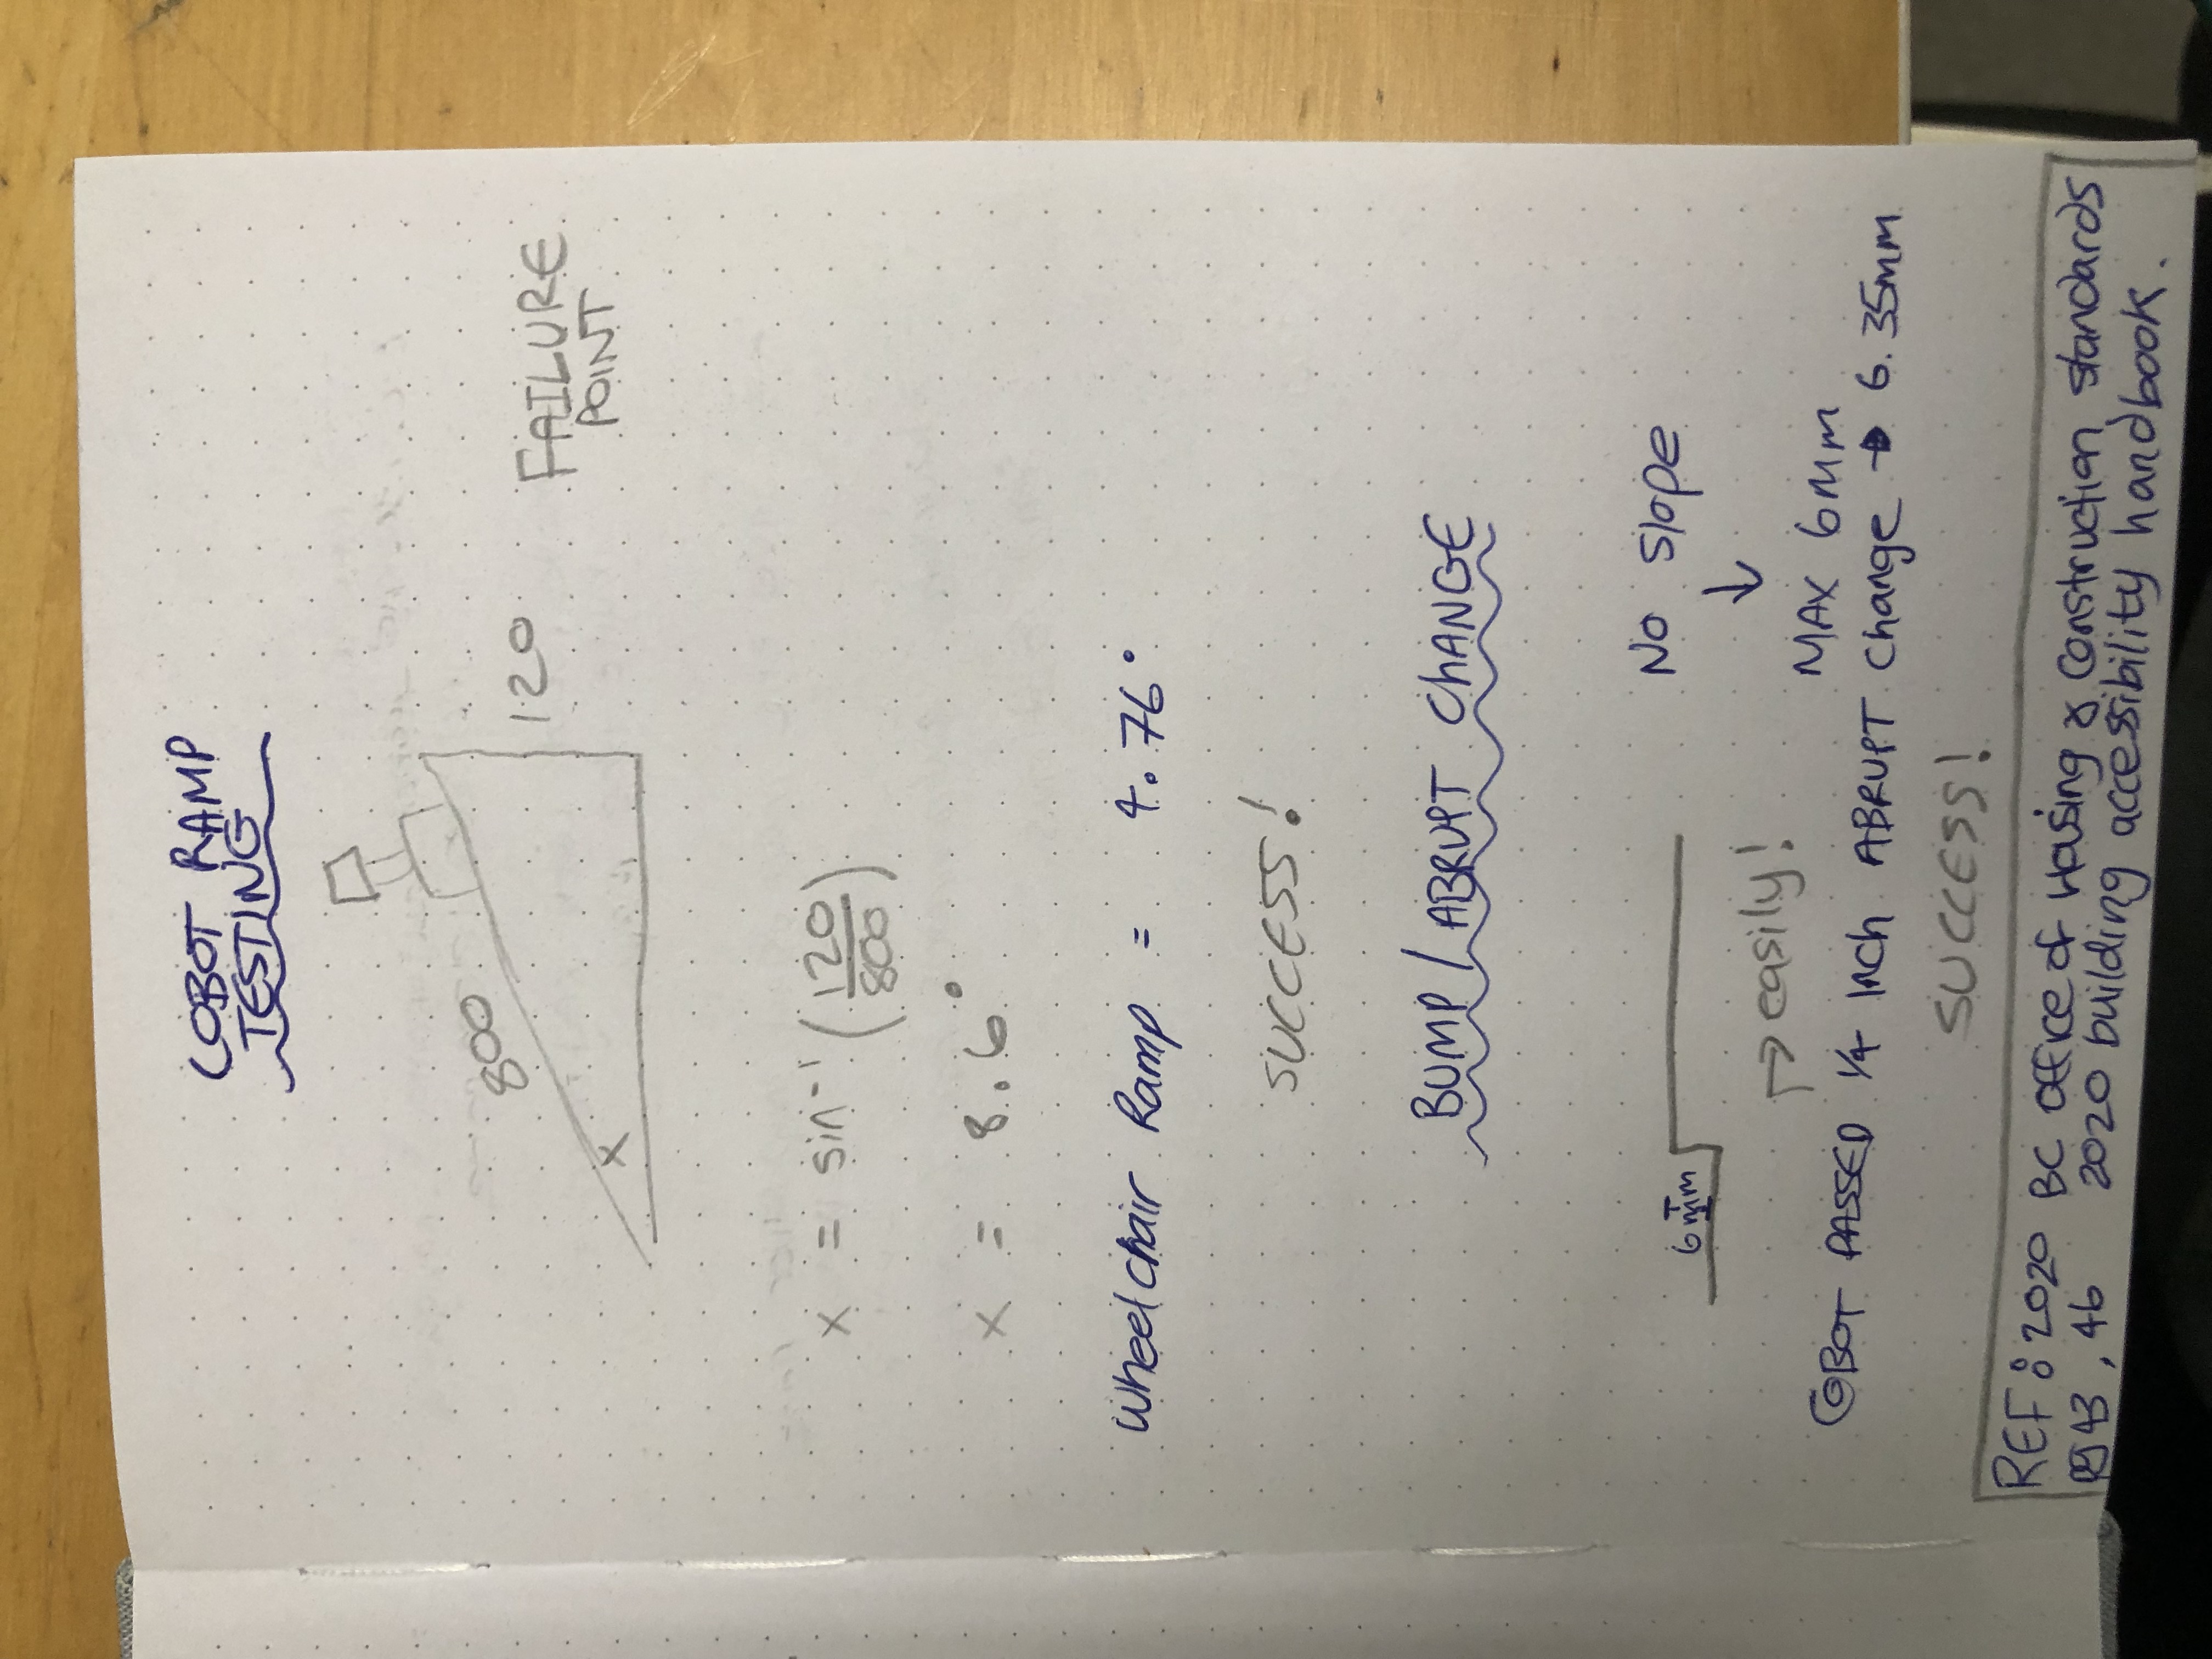 COBOT RAMP
TESTING
800
120
FAILURE
POINT
x
x = sin⁻¹ (120/800)
x = 8.6°
Wheelchair Ramp = 4.76°
SUCCESS!
BUMP / ABRUPT CHANGE
6mm
No slope
↓
MAX 6mm
↱ easily!
COBOT PASSED 1/4 Inch ABRUPT change → 6.35mm
SUCCESS!
REF: 2020 BC office of Housing & construction standards
pg 43, 46 2020 building accessibility handbook.